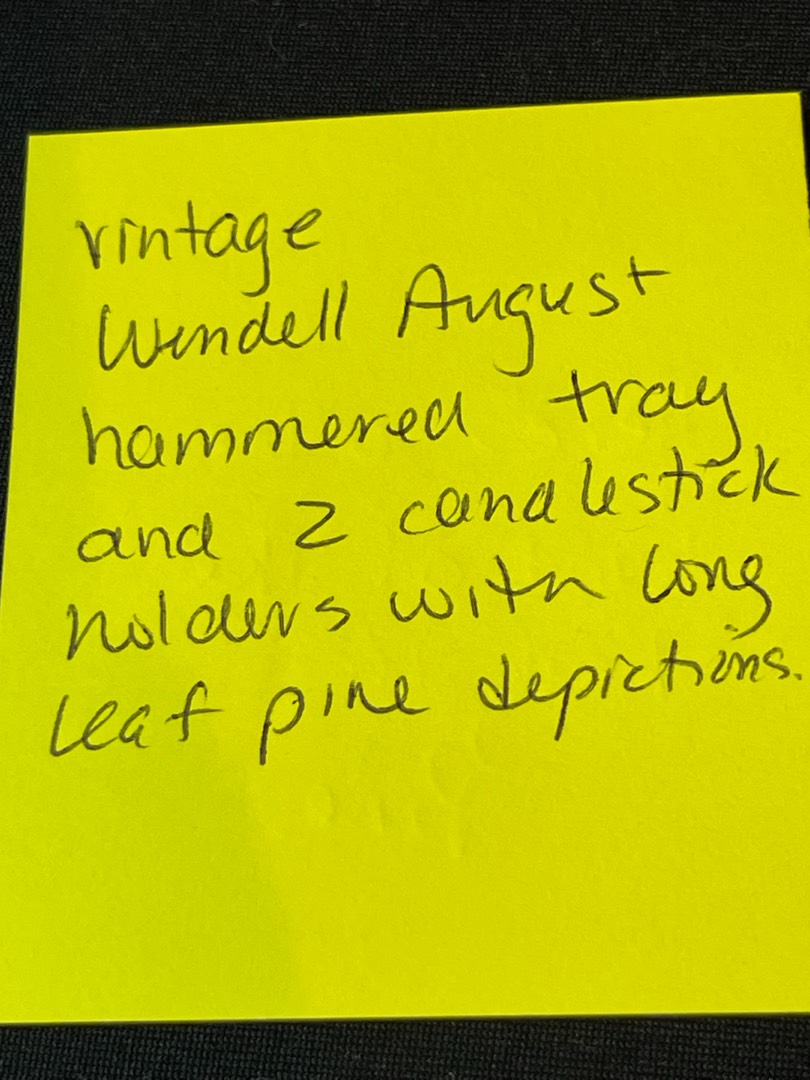 vintage
Wendell August
hammered tray
and 2 candlestick
holders with long
leaf pine depictions.